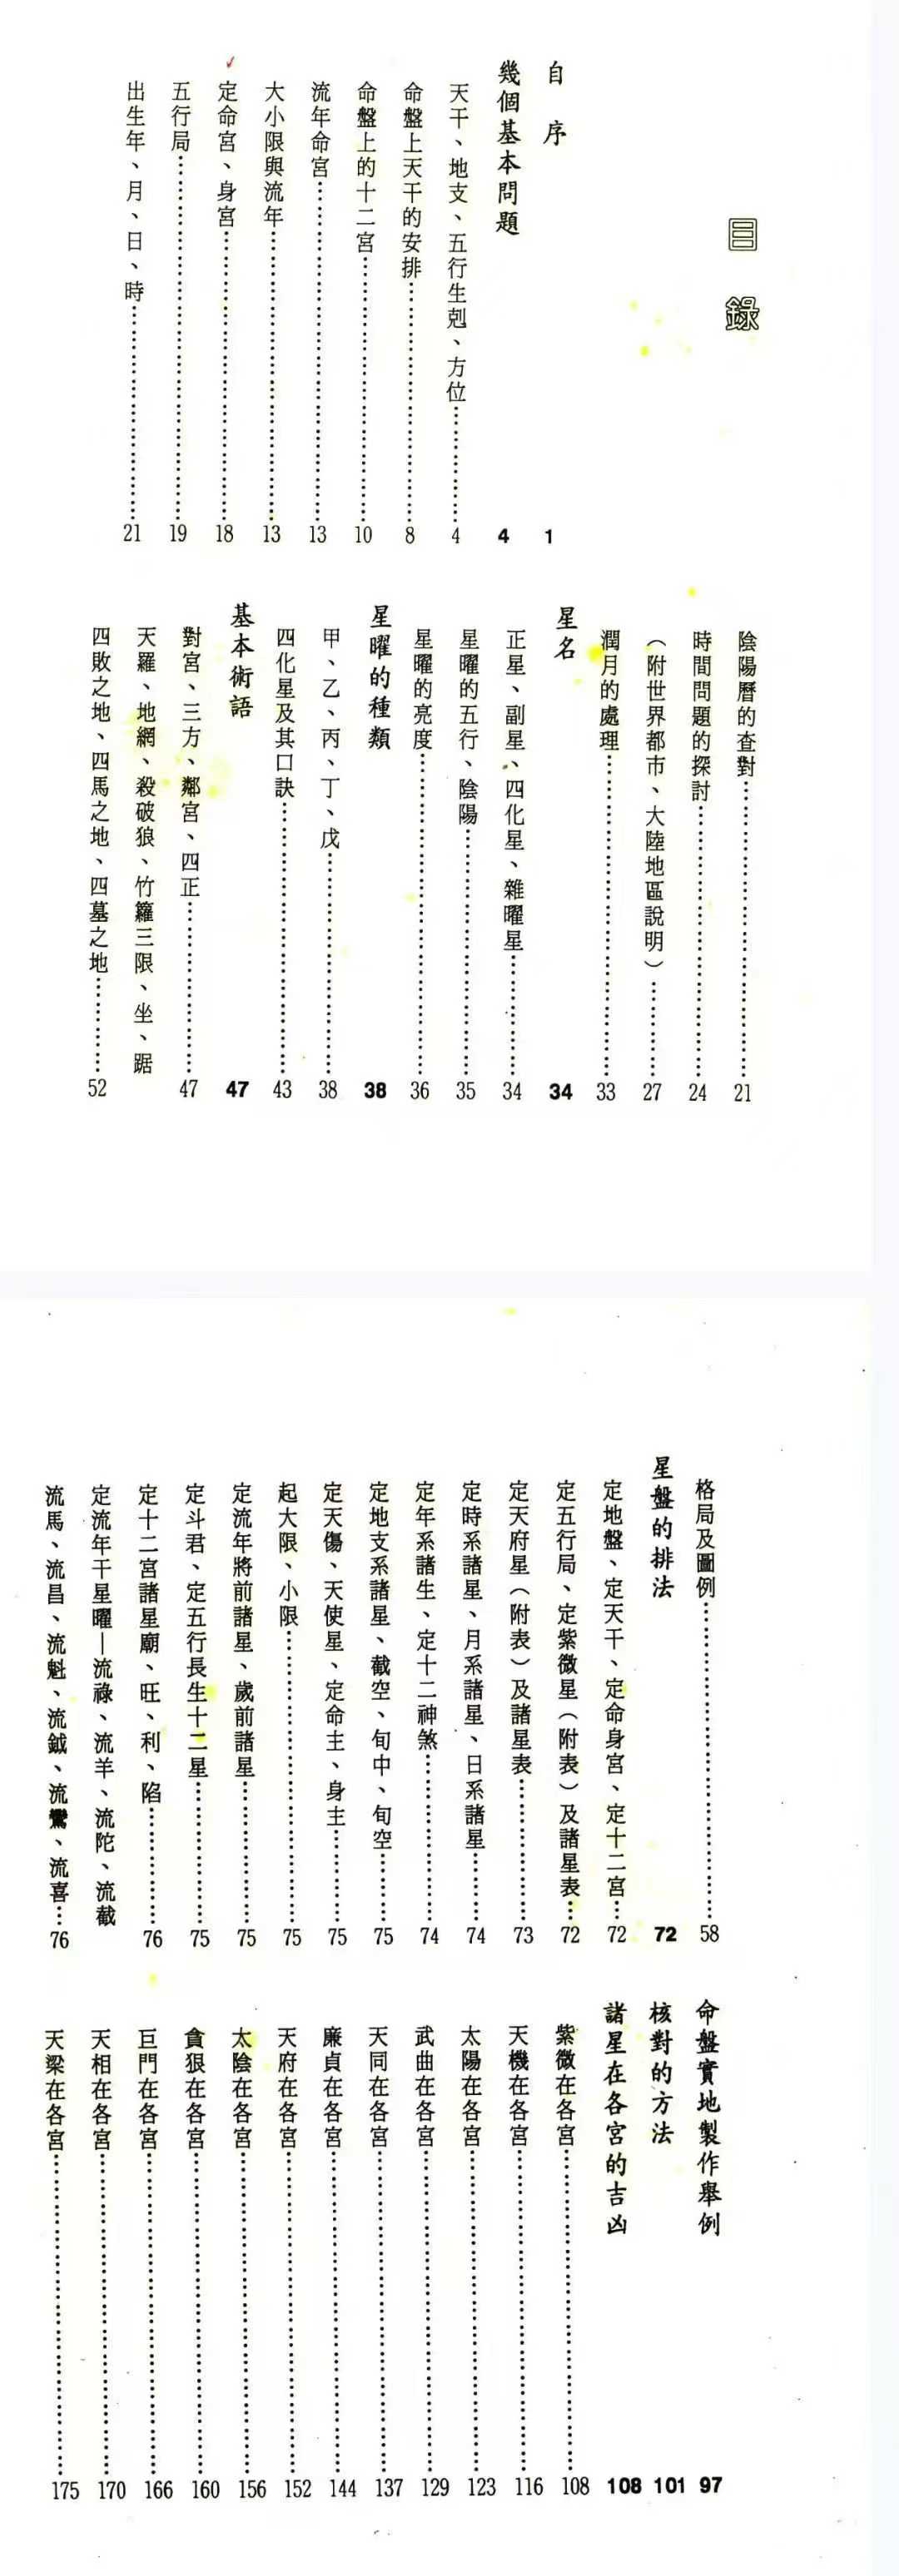 目錄
自序 1
幾個基本問題 4
天干、地支、五行生剋、方位 4
命盤上天干的安排 8
命盤上的十二宮 10
流年命宮 13
大小限與流年 13
定命宮、身宮 18
五行局 19
出生年、月、日、時 21
陰陽曆的查對 21
時間問題的探討 24
（附世界都市、大陸地區說明） 27
潤月的處理 33
星名 34
正星、副星、四化星、雜曜星 34
星曜的五行、陰陽 35
星曜的亮度 36
星曜的種類 38
甲、乙、丙、丁、戊 38
四化星及其口訣 43
基本術語 47
對宮、三方、鄰宮、四正 47
天羅、地網、殺破狼、竹籮三限、坐、踞
四敗之地、四馬之地、四墓之地 52
格局及圖例 58
星盤的排法 72
定地盤、定天干、定命身宮、定十二宮 72
定五行局、定紫微星（附表）及諸星表 72
定天府星（附表）及諸星表 73
定時系諸星、月系諸星、日系諸星 74
定年系諸生、定十二神煞 74
定地支系諸星、截空、旬中、旬空 75
定天傷、天使星、定命主、身主 75
起大限、小限 75
定流年將前諸星、歲前諸星 75
定斗君、定五行長生十二星 75
定十二宮諸星廟、旺、利、陷 76
定流年干星曜—流祿、流羊、流陀、流截
流馬、流昌、流魁、流鉞、流鸞、流喜 76
命盤實地製作舉例 97
核對的方法 101
諸星在各宮的吉凶 108
紫微在各宮 108
天機在各宮 116
太陽在各宮 123
武曲在各宮 129
天同在各宮 137
廉貞在各宮 144
天府在各宮 152
太陰在各宮 156
貪狠在各宮 160
巨門在各宮 166
天相在各宮 170
天梁在各宮 175